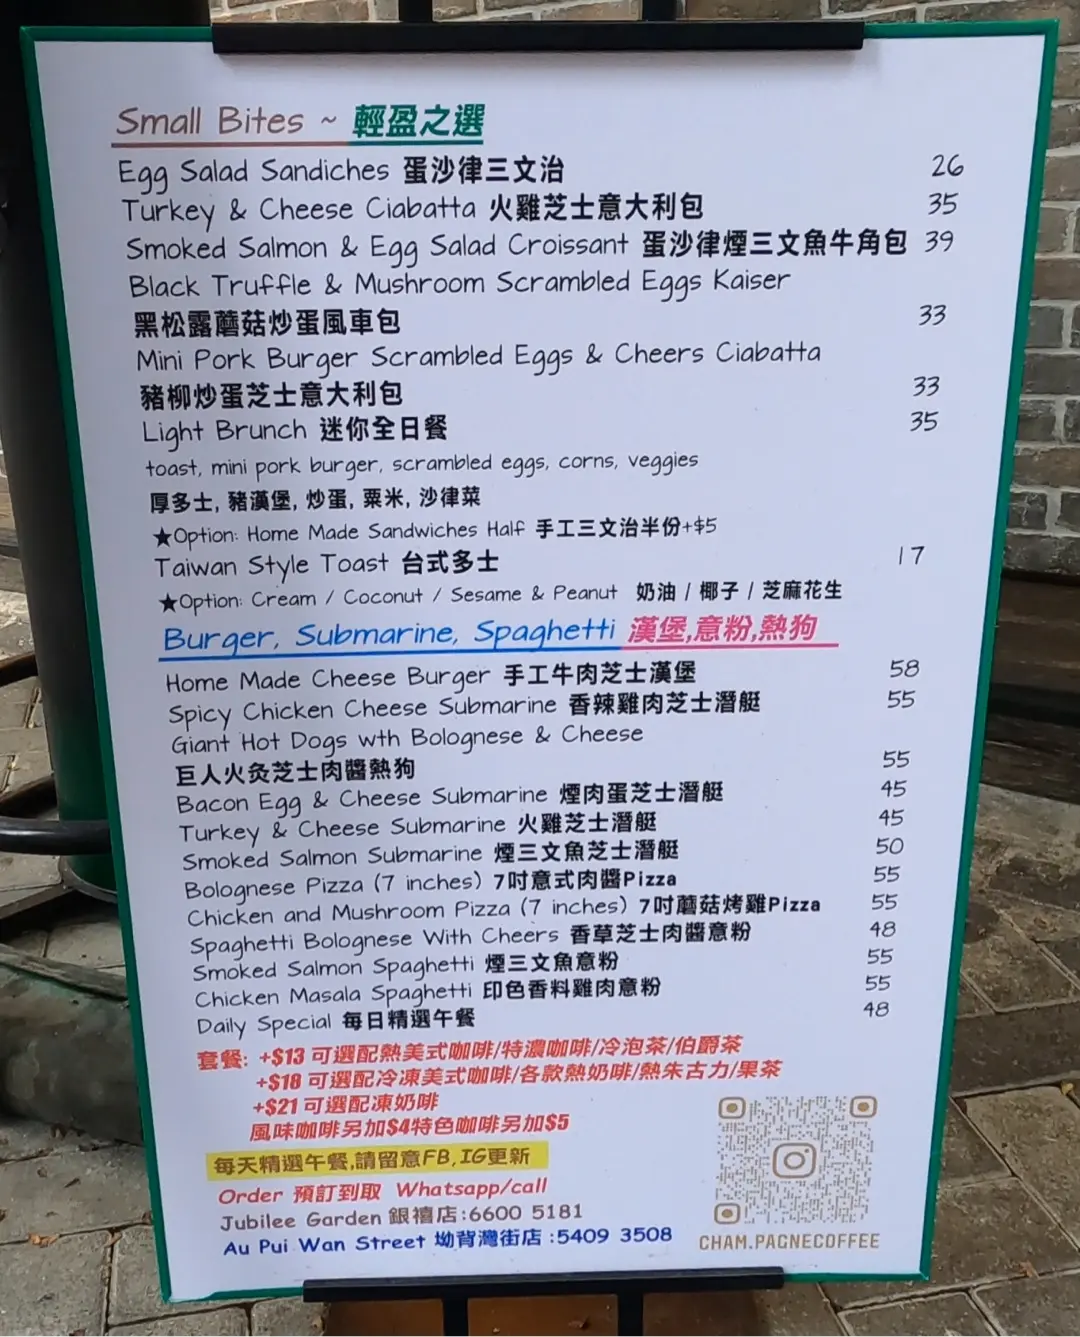 Small Bites ~ 輕盈之選
Egg Salad Sandiches 蛋沙律三文治 26
Turkey & Cheese Ciabatta 火雞芝士意大利包 35
Smoked Salmon & Egg Salad Croissant 蛋沙律煙三文魚牛角包 39
Black Truffle & Mushroom Scrambled Eggs Kaiser
黑松露蘑菇炒蛋風車包 33
Mini Pork Burger Scrambled Eggs & Cheers Ciabatta
豬柳炒蛋芝士意大利包 33
Light Brunch 迷你全日餐 35
toast, mini pork burger, scrambled eggs, corns, veggies
厚多士, 豬漢堡, 炒蛋, 粟米, 沙律菜
★Option: Home Made Sandwiches Half 手工三文治半份+$5
Taiwan Style Toast 台式多士 17
★Option: Cream / Coconut / Sesame & Peanut 奶油 / 椰子 / 芝麻花生
Burger, Submarine, Spaghetti 漢堡,意粉,熱狗
Home Made Cheese Burger 手工牛肉芝士漢堡 58
Spicy Chicken Cheese Submarine 香辣雞肉芝士潛艇 55
Giant Hot Dogs wth Bolognese & Cheese
巨人火灸芝士肉醬熱狗 55
Bacon Egg & Cheese Submarine 煙肉蛋芝士潛艇 45
Turkey & Cheese Submarine 火雞芝士潛艇 45
Smoked Salmon Submarine 煙三文魚芝士潛艇 50
Bolognese Pizza (7 inches) 7吋意式肉醬Pizza 55
Chicken and Mushroom Pizza (7 inches) 7吋蘑菇烤雞Pizza 55
Spaghetti Bolognese With Cheers 香草芝士肉醬意粉 48
Smoked Salmon Spaghetti 煙三文魚意粉 55
Chicken Masala Spaghetti 印色香料雞肉意粉 55
Daily Special 每日精選午餐 48
套餐: +$13 可選配熱美式咖啡/特濃咖啡/冷泡茶/伯爵茶
+$18 可選配冷凍美式咖啡/各款熱奶啡/熱朱古力/果茶
+$21 可選配凍奶啡
風味咖啡另加$4特色咖啡另加$5
每天精選午餐,請留意FB, IG更新
Order 預訂到取 Whatsapp/call
Jubilee Garden 銀禧店:6600 5181
Au Pui Wan Street 坳背灣街店 :5409 3508
CHAM.PAGNECOFFEE